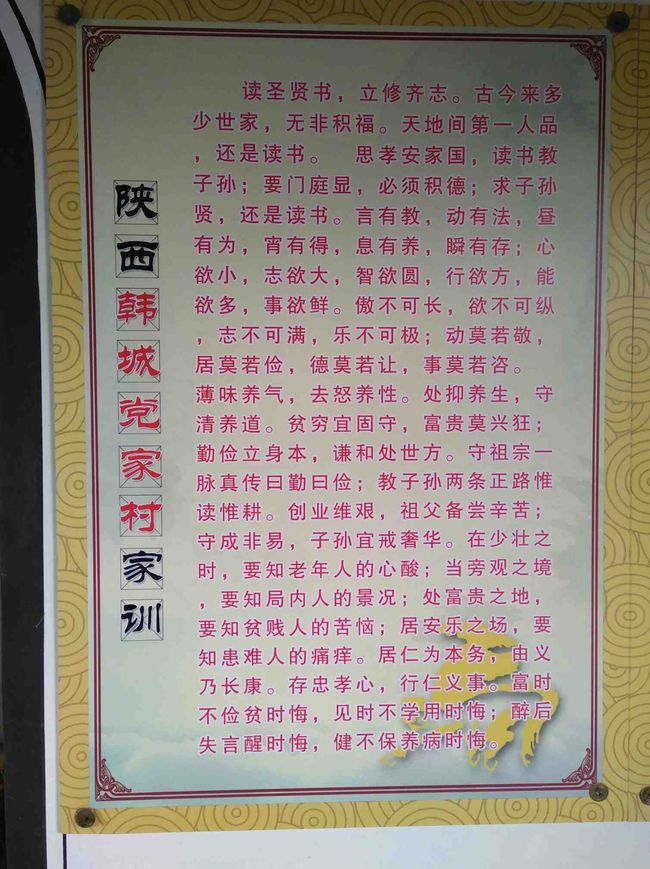 陕西韩城党家村家训
读圣贤书，立修齐志。古今来多
少世家，无非积福。天地间第一人品
，还是读书。 思孝安家国，读书教
子孙；要门庭显，必须积德；求子孙
贤，还是读书。言有教，动有法，昼
有为，宵有得，息有养，瞬有存；心
欲小，志欲大，智欲圆，行欲方，能
欲多，事欲鲜。傲不可长，欲不可纵
，志不可满，乐不可极；动莫若敬，
居莫若俭，德莫若让，事莫若咨。
薄味养气，去怒养性。处抑养生，守
清养道。贫穷宜固守，富贵莫兴狂；
勤俭立身本，谦和处世方。守祖宗一
脉真传曰勤曰俭；教子孙两条正路惟
读惟耕。创业维艰，祖父备尝辛苦；
守成非易，子孙宜戒奢华。在少壮之
时，要知老年人的心酸；当旁观之境
，要知局内人的景况；处富贵之地，
要知贫贱人的苦恼；居安乐之场，要
知患难人的痛痒。居仁为本务，由义
乃长康。存忠孝心，行仁义事。富时
不俭贫时悔，见时不学用时悔；醉后
失言醒时悔，健不保养病时悔。